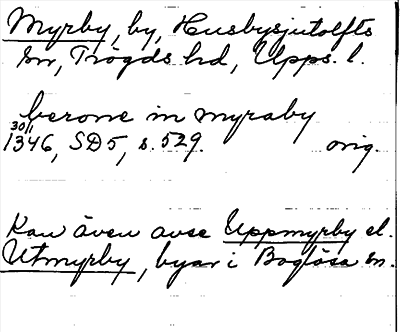 Myrby, by, Husbysjutolfts
sn, Trögds hd, Upps. l.
berone in myraby
30/1
1346, SD5, s. 529. orig.
Kan även avse Uppmyrby el.
Utmyrby, byar i Boglösa sn.